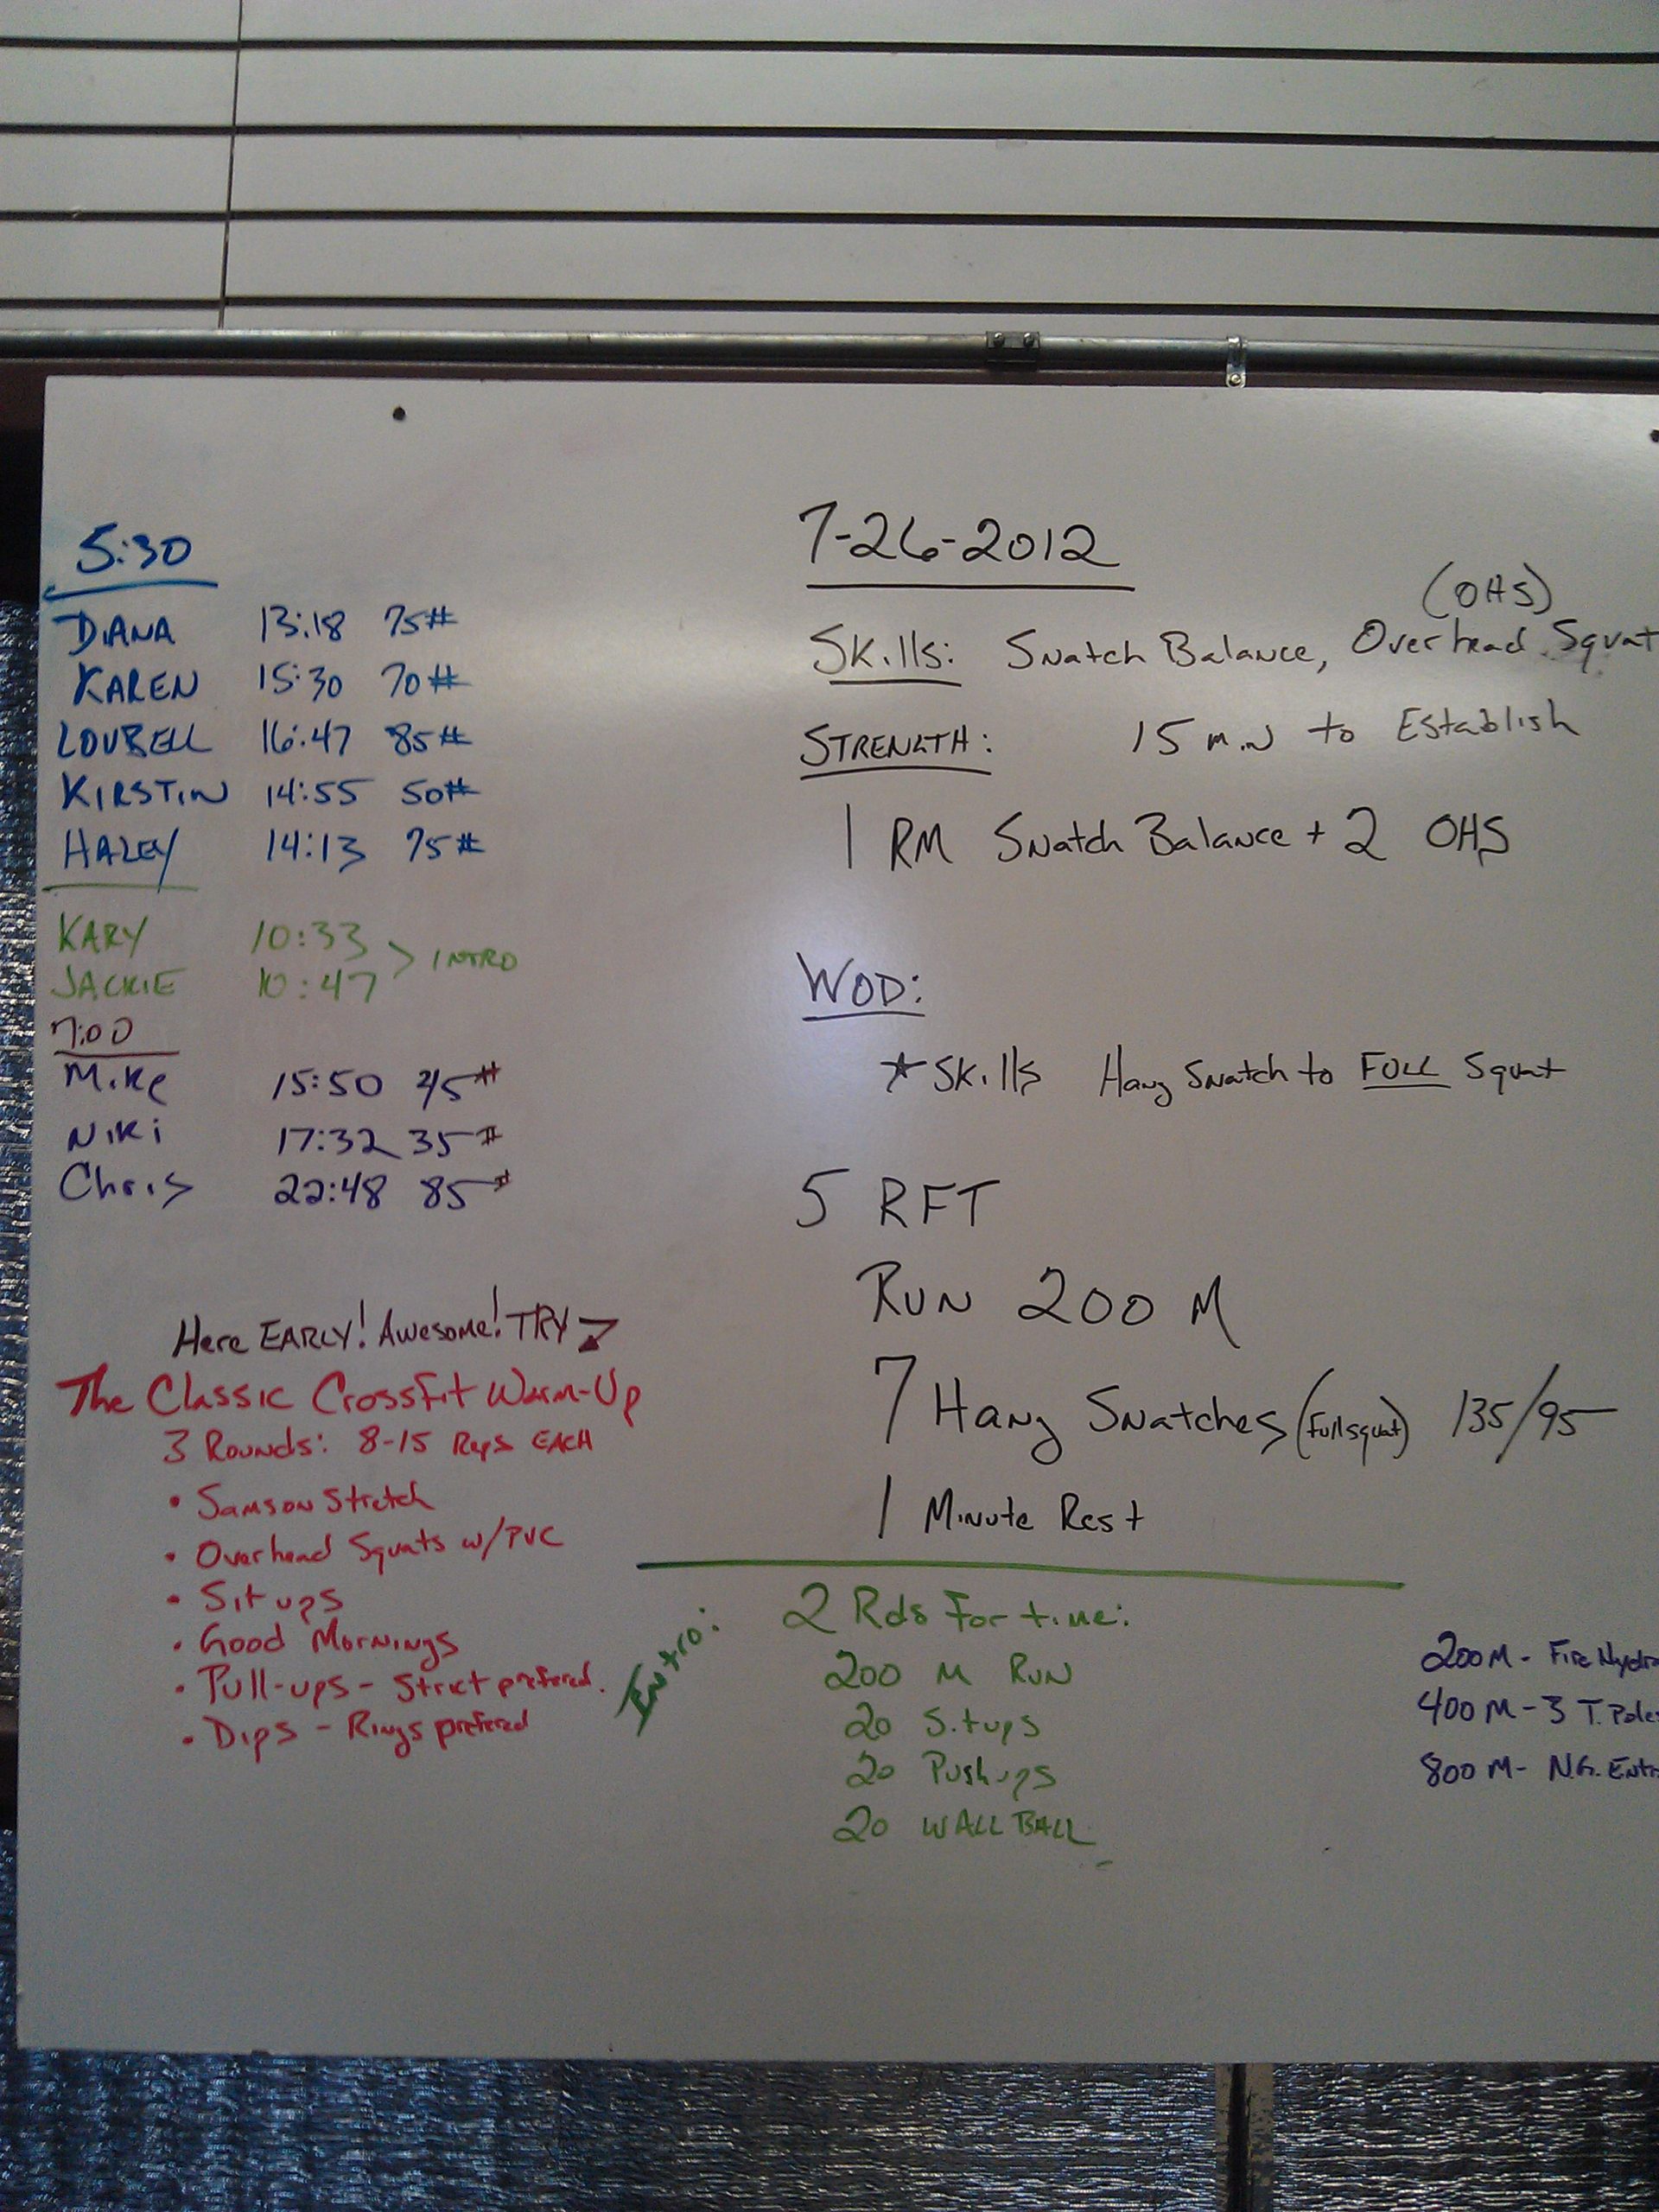 5:30
DIANA 13:18 75#
KAREN 15:30 70#
LOUBELL 16:47 85#
KIRSTIN 14:55 50#
HALEY 14:13 75#
KARY 10:33
> INTRO
JACKIE 10:47
7:00
Mike 15:50 #
NIKi 17:32 35#
Chris 22:48 85#
Here EARLY! Awesome! TRY
The Classic CrossFit Warm-Up
3 Rounds: 8-15 Reps EACH
• Samson Stretch
• Overhead Squats w/PVC
• Sit ups
• Good Mornings
• Pull-ups - Strict prefered.
• Dips - Rings prefered
7-26-2012
(OHS)
Skills: Snatch Balance, Overhead Squat
STRENGTH: 15 min to Establish
1 RM Snatch Balance + 2 OHS
WOD:
* Skills Hang Snatch to FULL Squat
5 RFT
RUN 200 M
7 Hang Snatches (Full squat) 135/95
1 Minute Rest
Intro: 2 Rds For time:
200 M RUN
20 Situps
20 Pushups
20 WALL BALL
200 M - Fire Hydra
400 M - 3 T. Pole
800 M - N.G. Ent